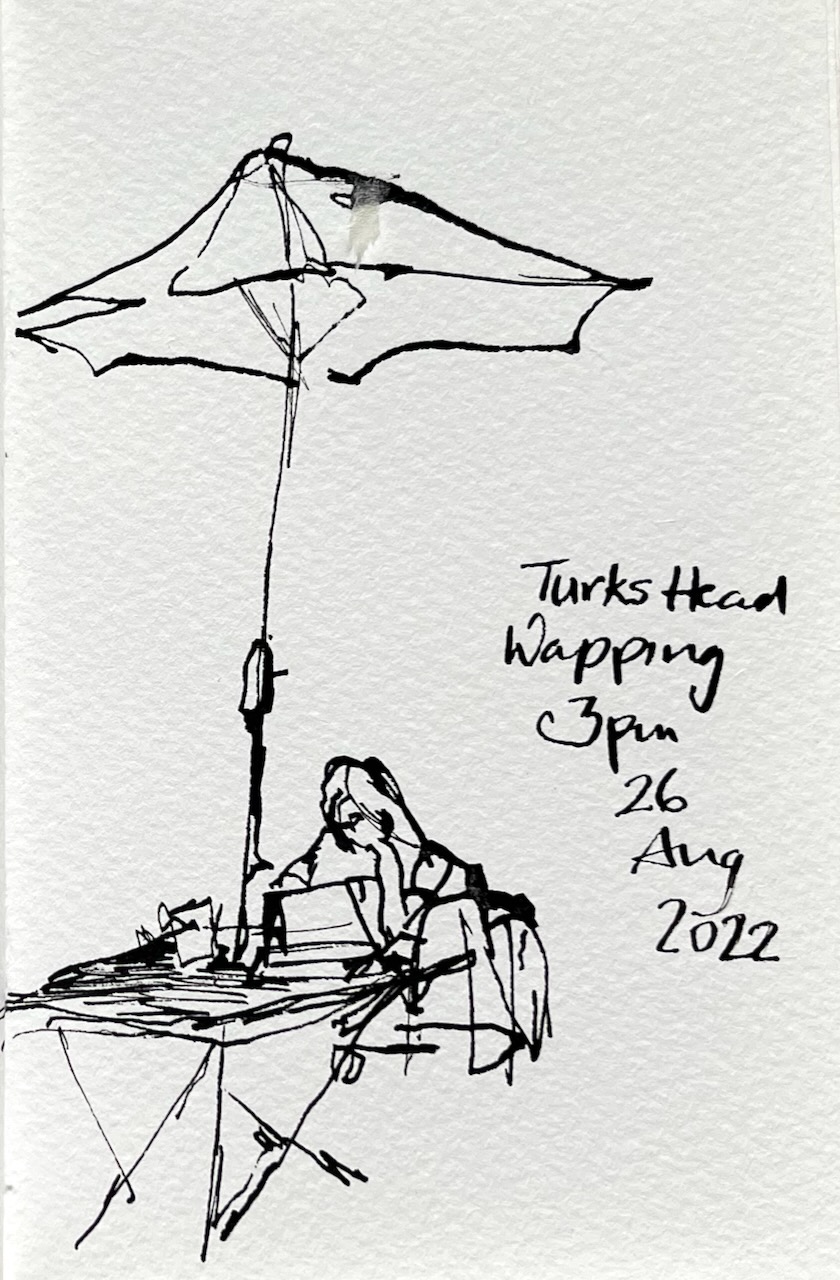 Turks Head
Wapping
3pm
26
Aug
2022